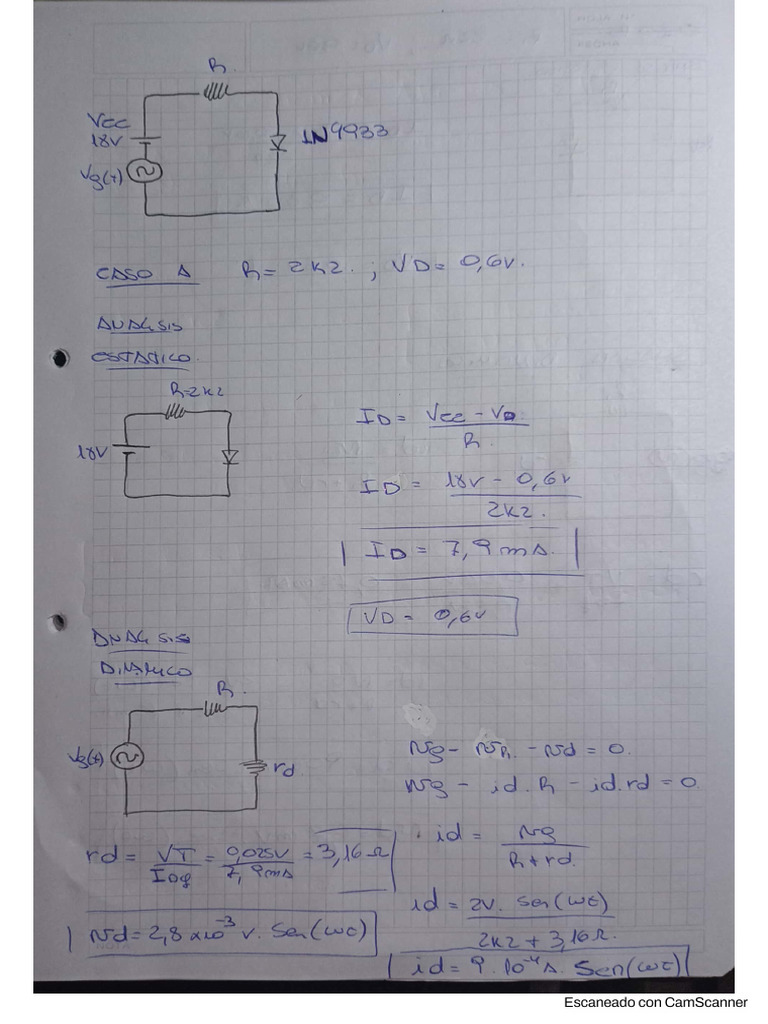 R.
VCC
18V
Vg(t)
1N4933
CASO A R= 2k2. ; VD= 0,6V.
ANALISIS
ESTATICO.
R=2k2
18V
ID = VCC - VD
R.
ID = 18V - 0,6V
2k2.
ID = 7,9 mA.
VD = 0,6V
ANALISIS
DINAMICO
R.
Vg(t)
rd
Vg - VR. - Vd = 0.
Vg - id.R - id.rd = 0
rd = VT = 0,025V = 3,16 Ω
IDq 7,9mA
id = Vg
R+rd.
id = 2V. Sen(wt)
2k2 + 3,16Ω.
Vd = 2,8 x10⁻³ V. Sen(wt)
id = 9. 10⁻⁴ A. Sen(wt)
Escaneado con CamScanner